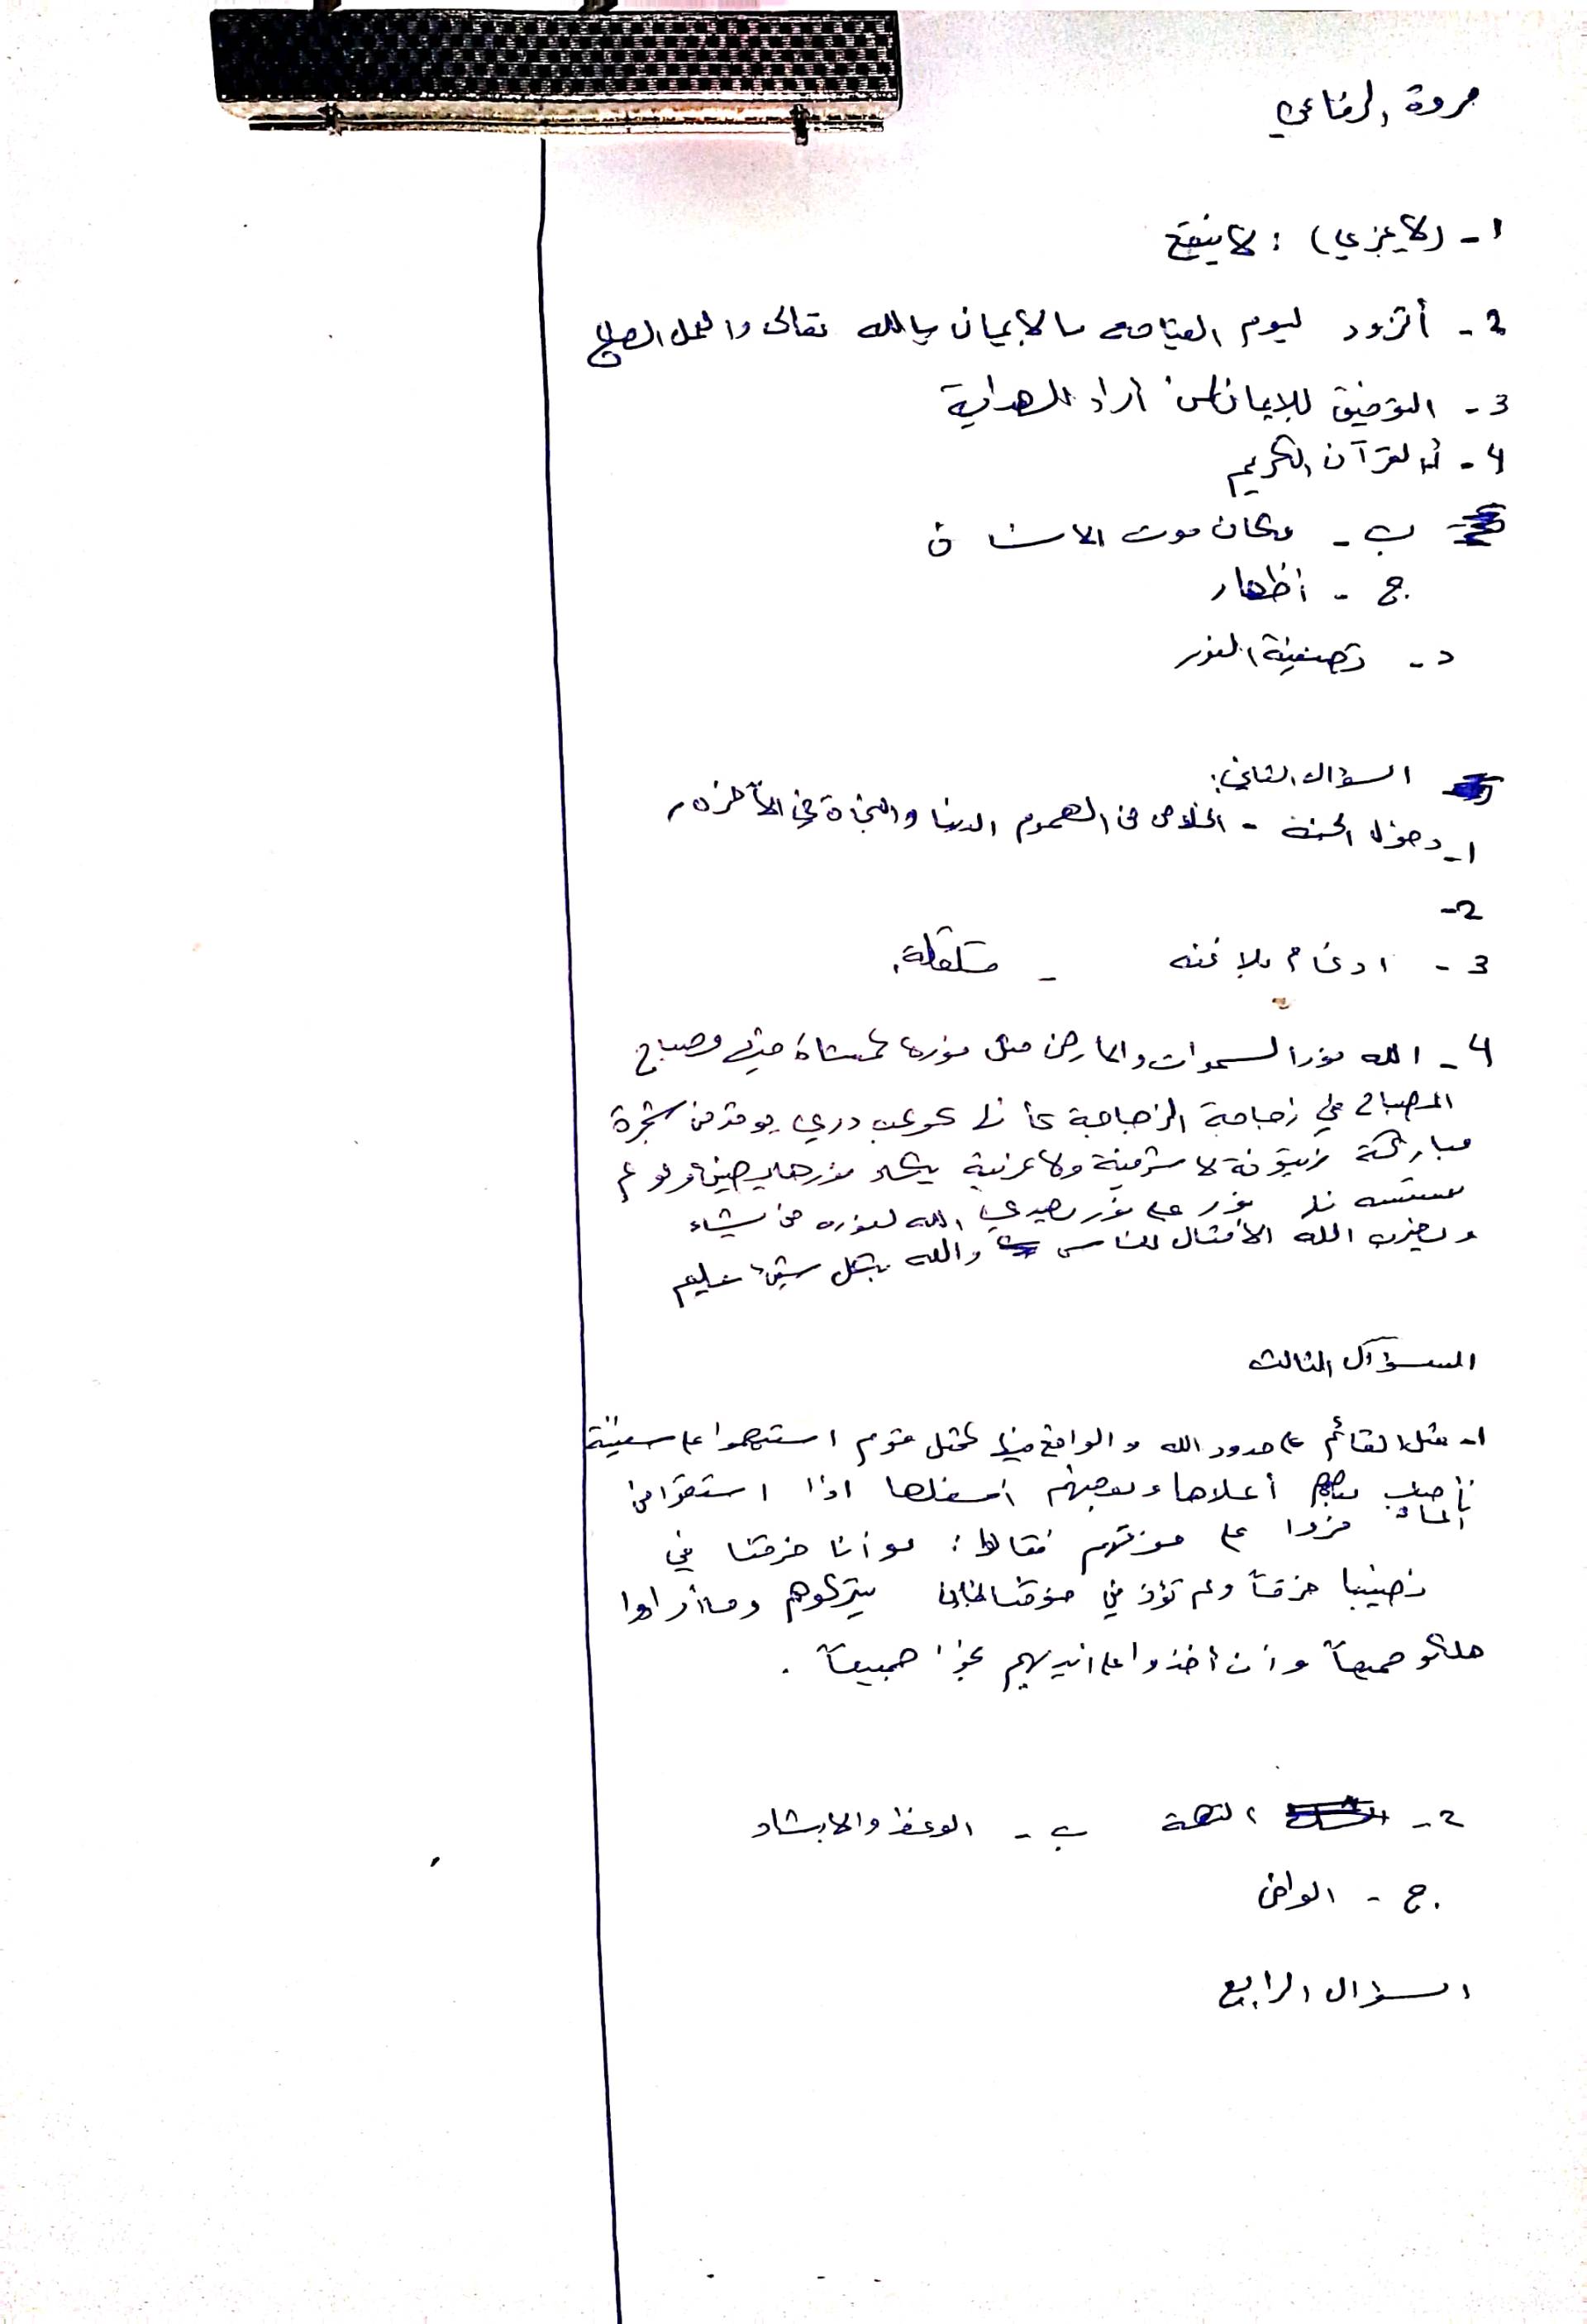 مروة الرفاعي
1- (لا يجزي) : لا ينفع
2- أتزود ليوم القيامة بالإيمان بالله تعالى والعمل الصالح
3- التوفيق للإيمان لمن أراد الهداية
4- أ- القرآن الكريم
ب- مكان موت الانسان
ج - إظهار
د- تصفية النور
السؤال الثاني:
1- دخول الجنة - الخلاص من الهموم الدنيا والنجاة في الآخرة
2-
3- ادغام بلا غنه - قلقلة
4- الله نور السموات والارض مثل نوره كمشكاة فيها مصباح
المصباح في زجاجة الزجاجة كأنها كوكب دري يوقد من شجرة
مباركة زيتونة لا شرقية ولا غربية يكاد نورها يضيئ ولو لم
تمسسه نار نور على نور يهدي الله لنوره من يشاء
ويضرب الله الأمثال للناس والله بكل شيئ عليم
السؤال الثالث
1- مثل القائم على حدود الله والواقع فيها كمثل قوم استهموا على سفينة
فأصاب بعضهم أعلاها وبعضهم أسفلها اذا استقوا من
الماء مروا على من فوقهم فقالوا: لو أنا خرقنا في
نصيبنا خرقاً ولم نؤذ من فوقنا فان يتركوهم وما أرادوا
هلكو جميعاً وإن أخذوا على أيديهم نجوا جميعاً .
2- التهمة ب- الوعظ والارشاد
ج - الواض
السؤال الرابع